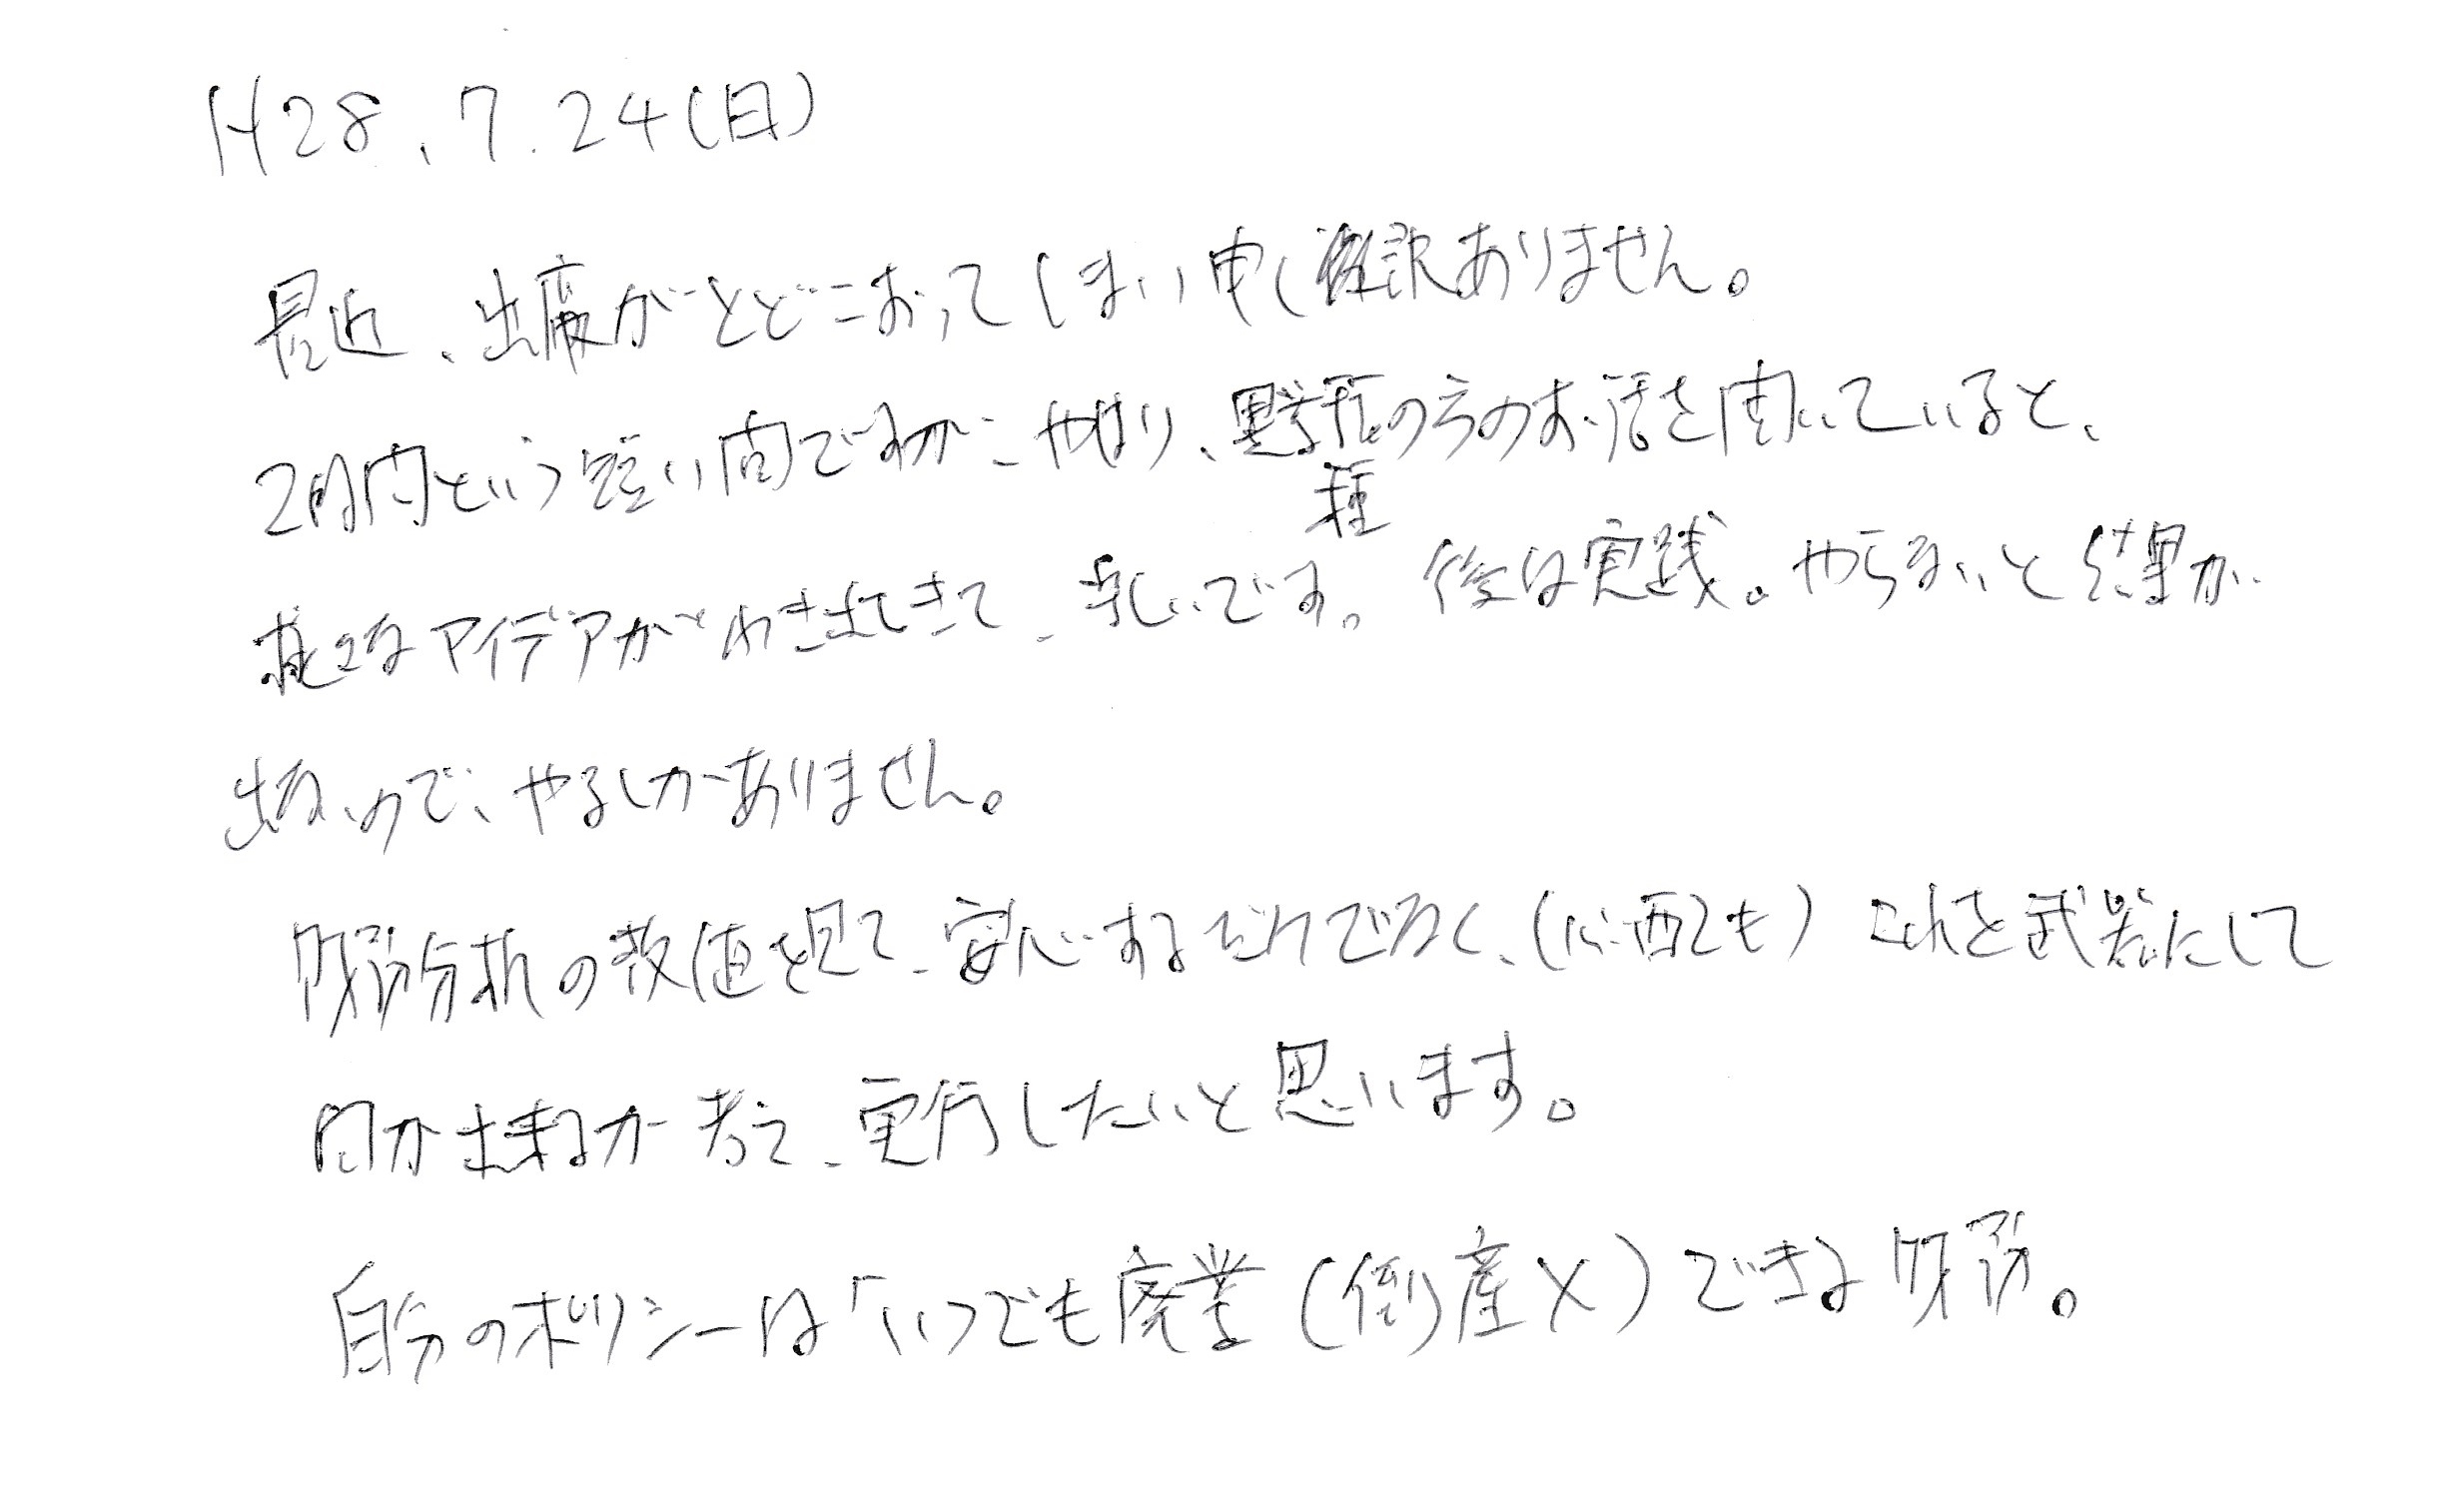 H28.7.24(日)
最近、出席がとどこおってしまい申し訳ありません。
2日間という短い間ですが、やはり、異業種の方のお話を聞いていると、
様々なアイデアがわき出てきて、楽しいです。後は実践。やらないと結果が
出ないので、やるしかありません。
財務分析の数値を見て、安心するだけでなく、(心配しても)これを武器にして
何か出来るか考えて、実行したいと思います。
自分のポリシーは「いつでも廃業(倒産×)できる財務。